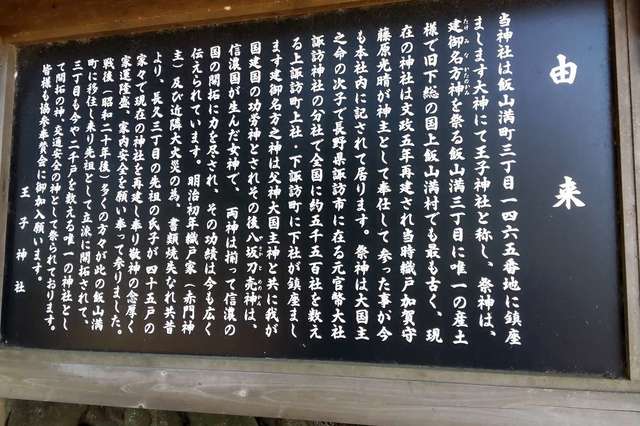 由来
当神社は飯山満町三丁目一四六五番地に鎮座
まします大神にて王子神社と称し、祭神は、
建御名方神を祭る飯山満三丁目に唯一の産土
たけみなかたのかみ
様で旧下総の国上飯山満村でも最も古く、現
在の神社は文政五年再建され当時織戸加賀守
藤原光晴が神主として奉仕して参った事が今
も本社内に記されて居ります。祭神は大国主
之命の次子で長野県諏訪市に在る元官幣大社
諏訪神社の分社で全国に約五千五百社を数え
る上諏訪町上社・下諏訪町に下社が鎮座まし
ます建御名方之神は父神大国主神と共に我が
国建国の功労神とされその後八坂刀売神は、
信濃国が生んだ女神で、両神は揃って信濃の
国の開拓に力を尽され、その功績は今も広く
伝えられています。明治初年織戸家(赤門神
主)及び近隣大火災の為、書類焼失なれ共昔
より、長久三丁目の先祖の氏子が四十五戸の
家々で現在の神社を再建し奉り敬神の念厚く
家運隆盛、家内安全を願い奉って参りました。
戦後(昭和二十年後)多くの方々が此の飯山満
町に移住し来り先祖として立派に開拓されて、
三丁目も今や二千戸を数える唯一の神社とし
て開拓の神、交通安全の神として祭られております。
皆様も協参奉賛会に御加入願います。
王子神社